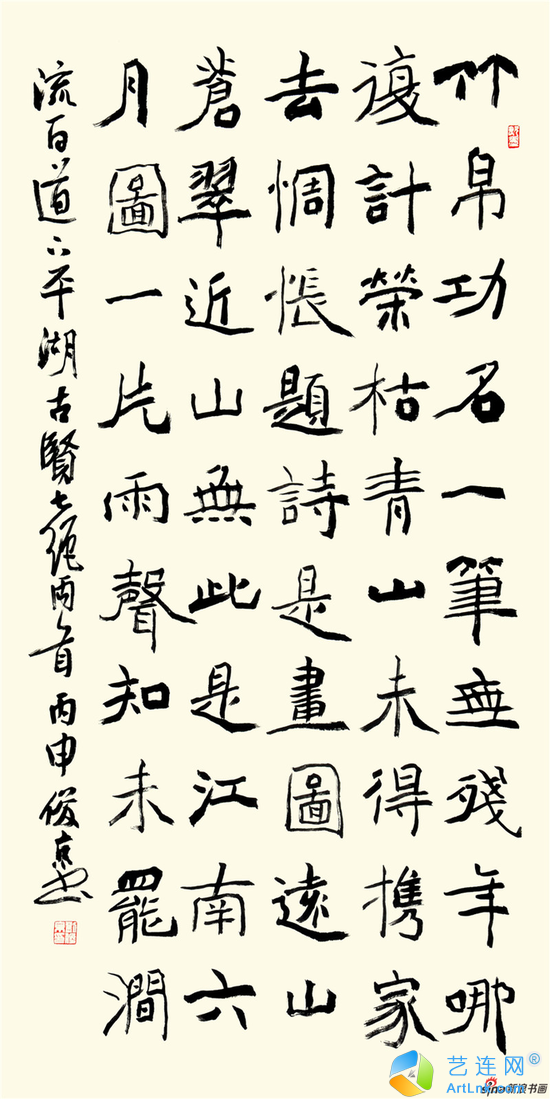 竹帛功名一筆無殘年哪
復計榮枯青山未得携家
去惆悵題詩是畫圖遠山
蒼翠近山無此是江南六
月圖一片雨聲知未罷澗
流百道下平湖古賢七絕兩首丙申俊京書
艺连网®
sina新浪书画